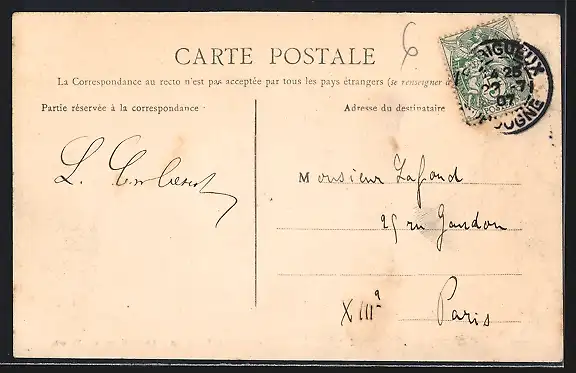 CARTE POSTALE
6
La Correspondance au recto n'est pas acceptée par tous les pays étrangers (se renseigner
Partie réservée à la correspondance
Adresse du destinataire
Monsieur Lafond
25 ru Gandon
XIIIe
Paris
PÉRIGUEUX
25
23 -7
07
DOGNE